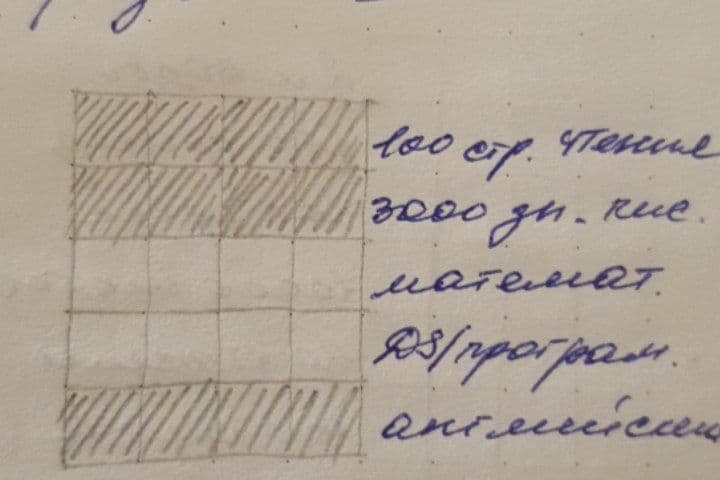 100 стр. чтения
3000 зн. пис.
математ.
DS/програм.
английский